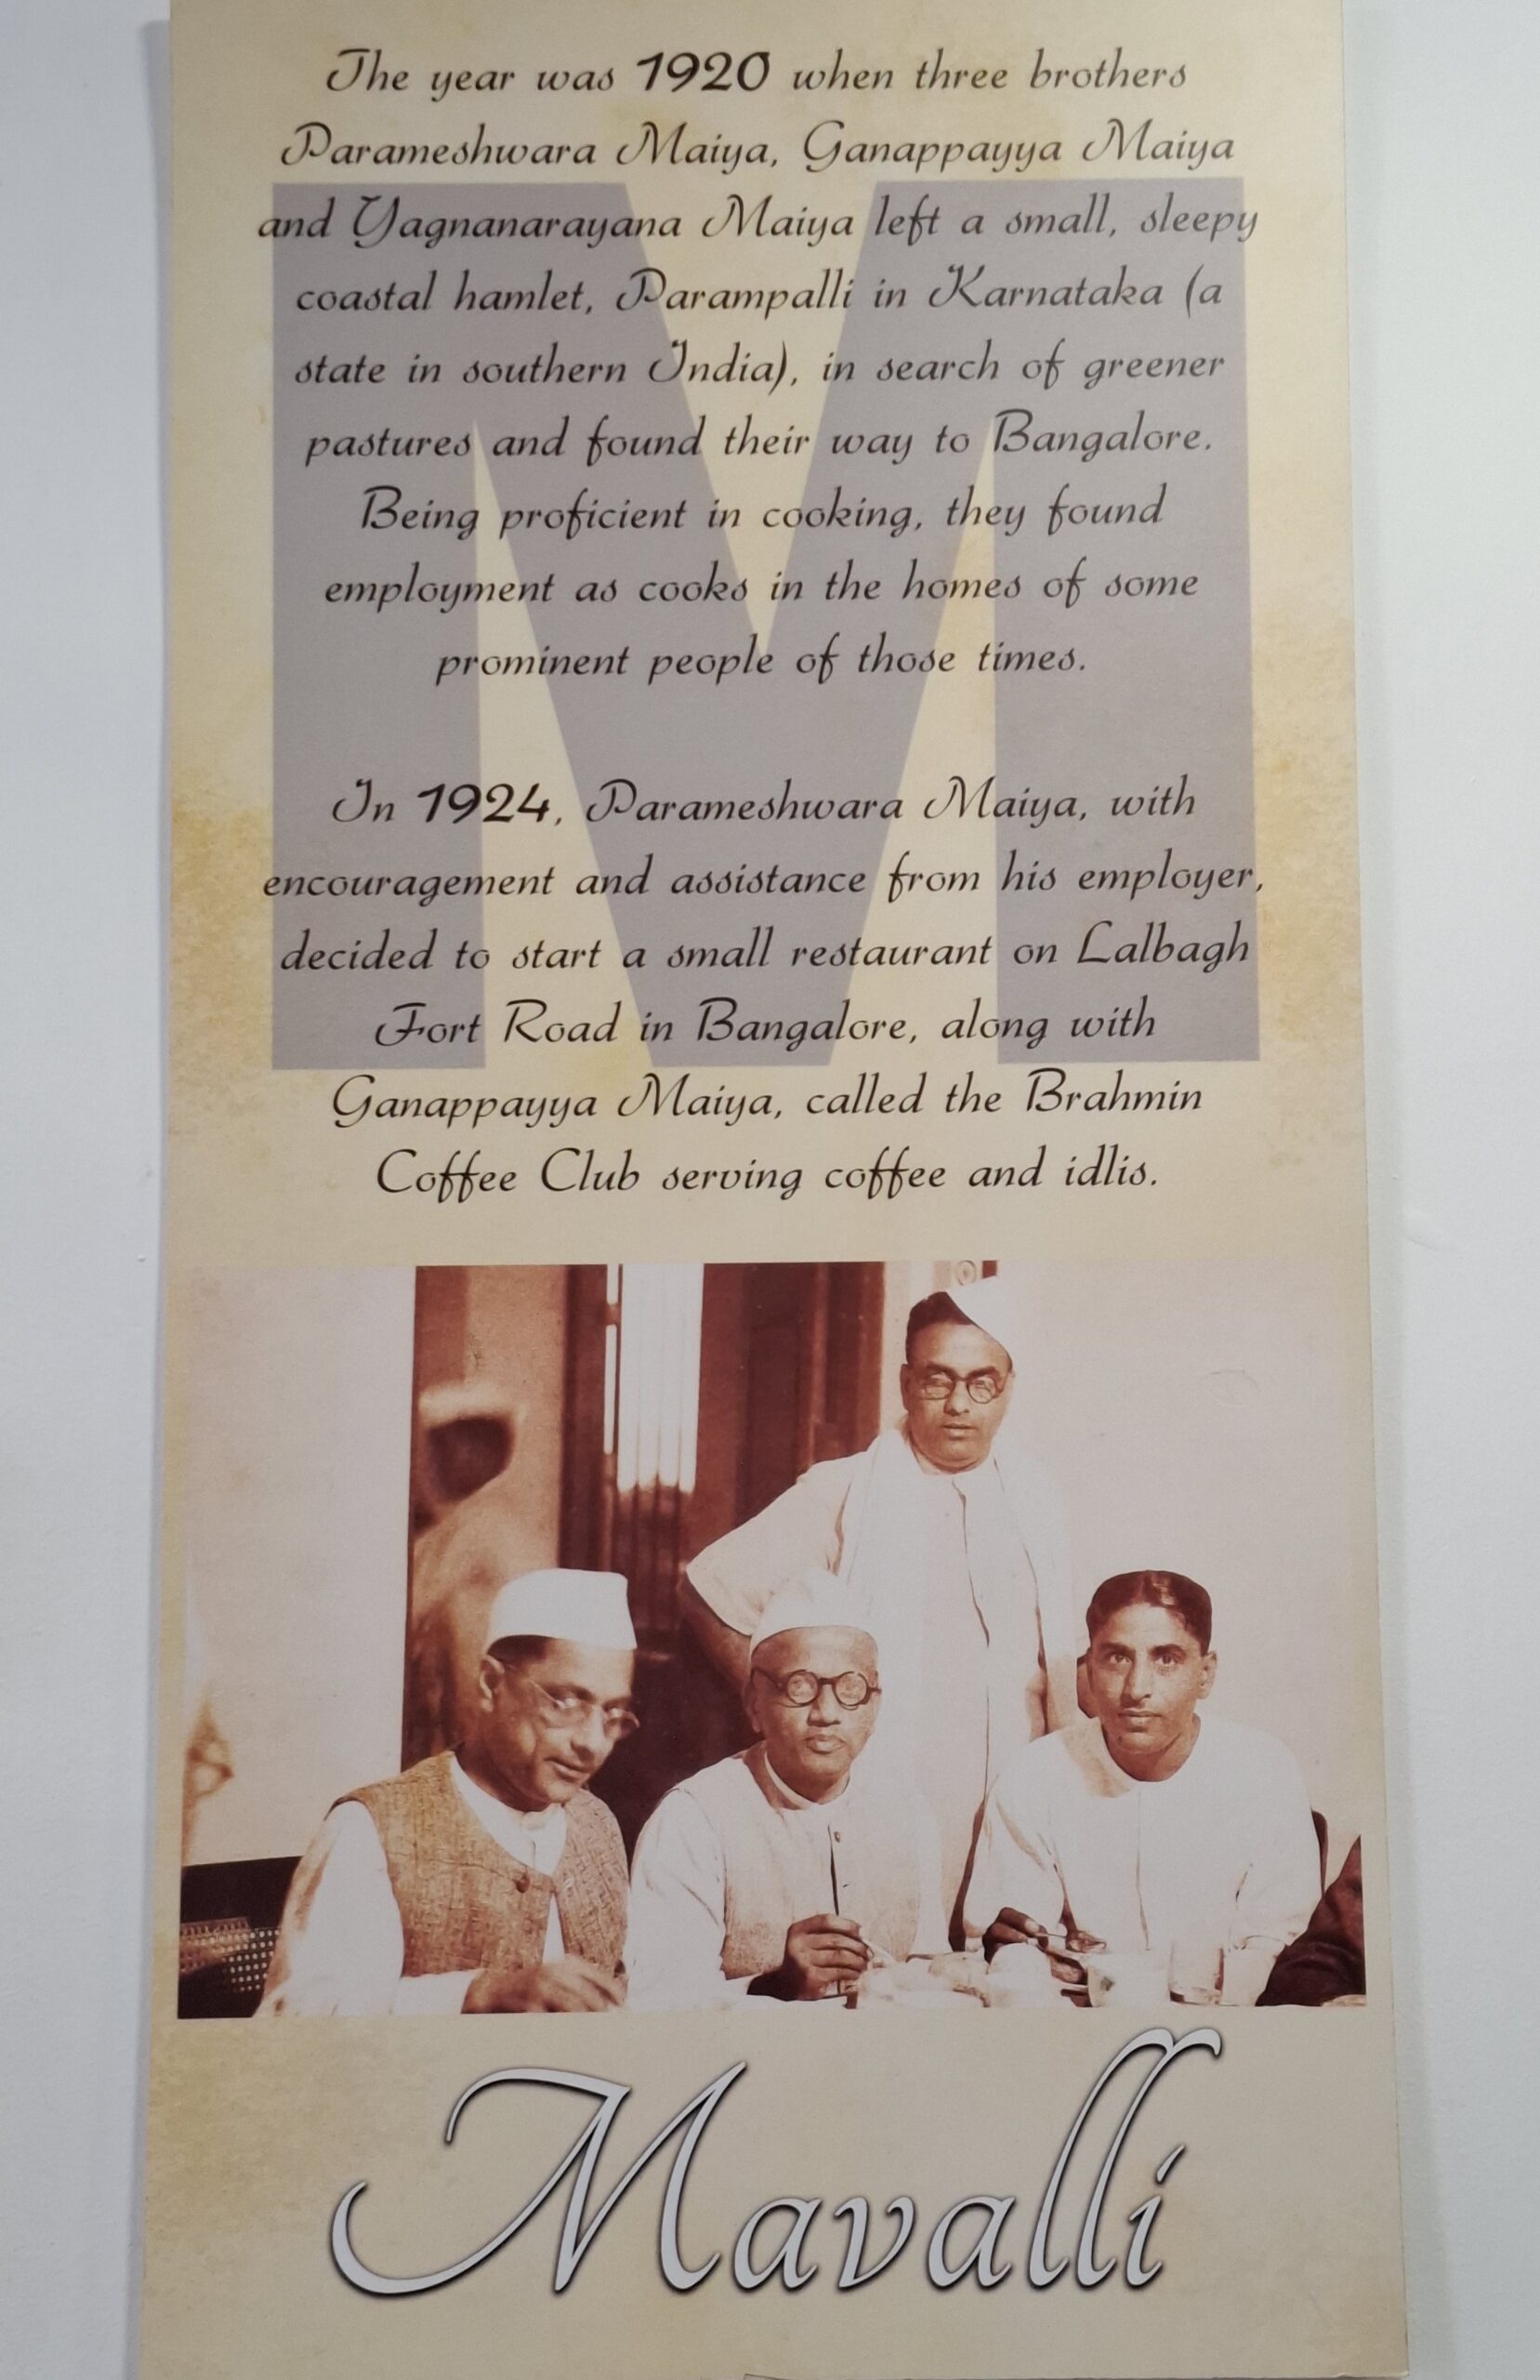 The year was 1920 when three brothers
Parameshwara Maiya, Ganappayya Maiya
and Yagnanarayana Maiya left a small, sleepy
coastal hamlet, Parampalli in Karnataka (a
state in southern India), in search of greener
pastures and found their way to Bangalore.
Being proficient in cooking, they found
employment as cooks in the homes of some
prominent people of those times.
In 1924, Parameshwara Maiya, with
encouragement and assistance from his employer,
decided to start a small restaurant on Lalbagh
Fort Road in Bangalore, along with
Ganappayya Maiya, called the Brahmin
Coffee Club serving coffee and idlis.
M
Mavalli